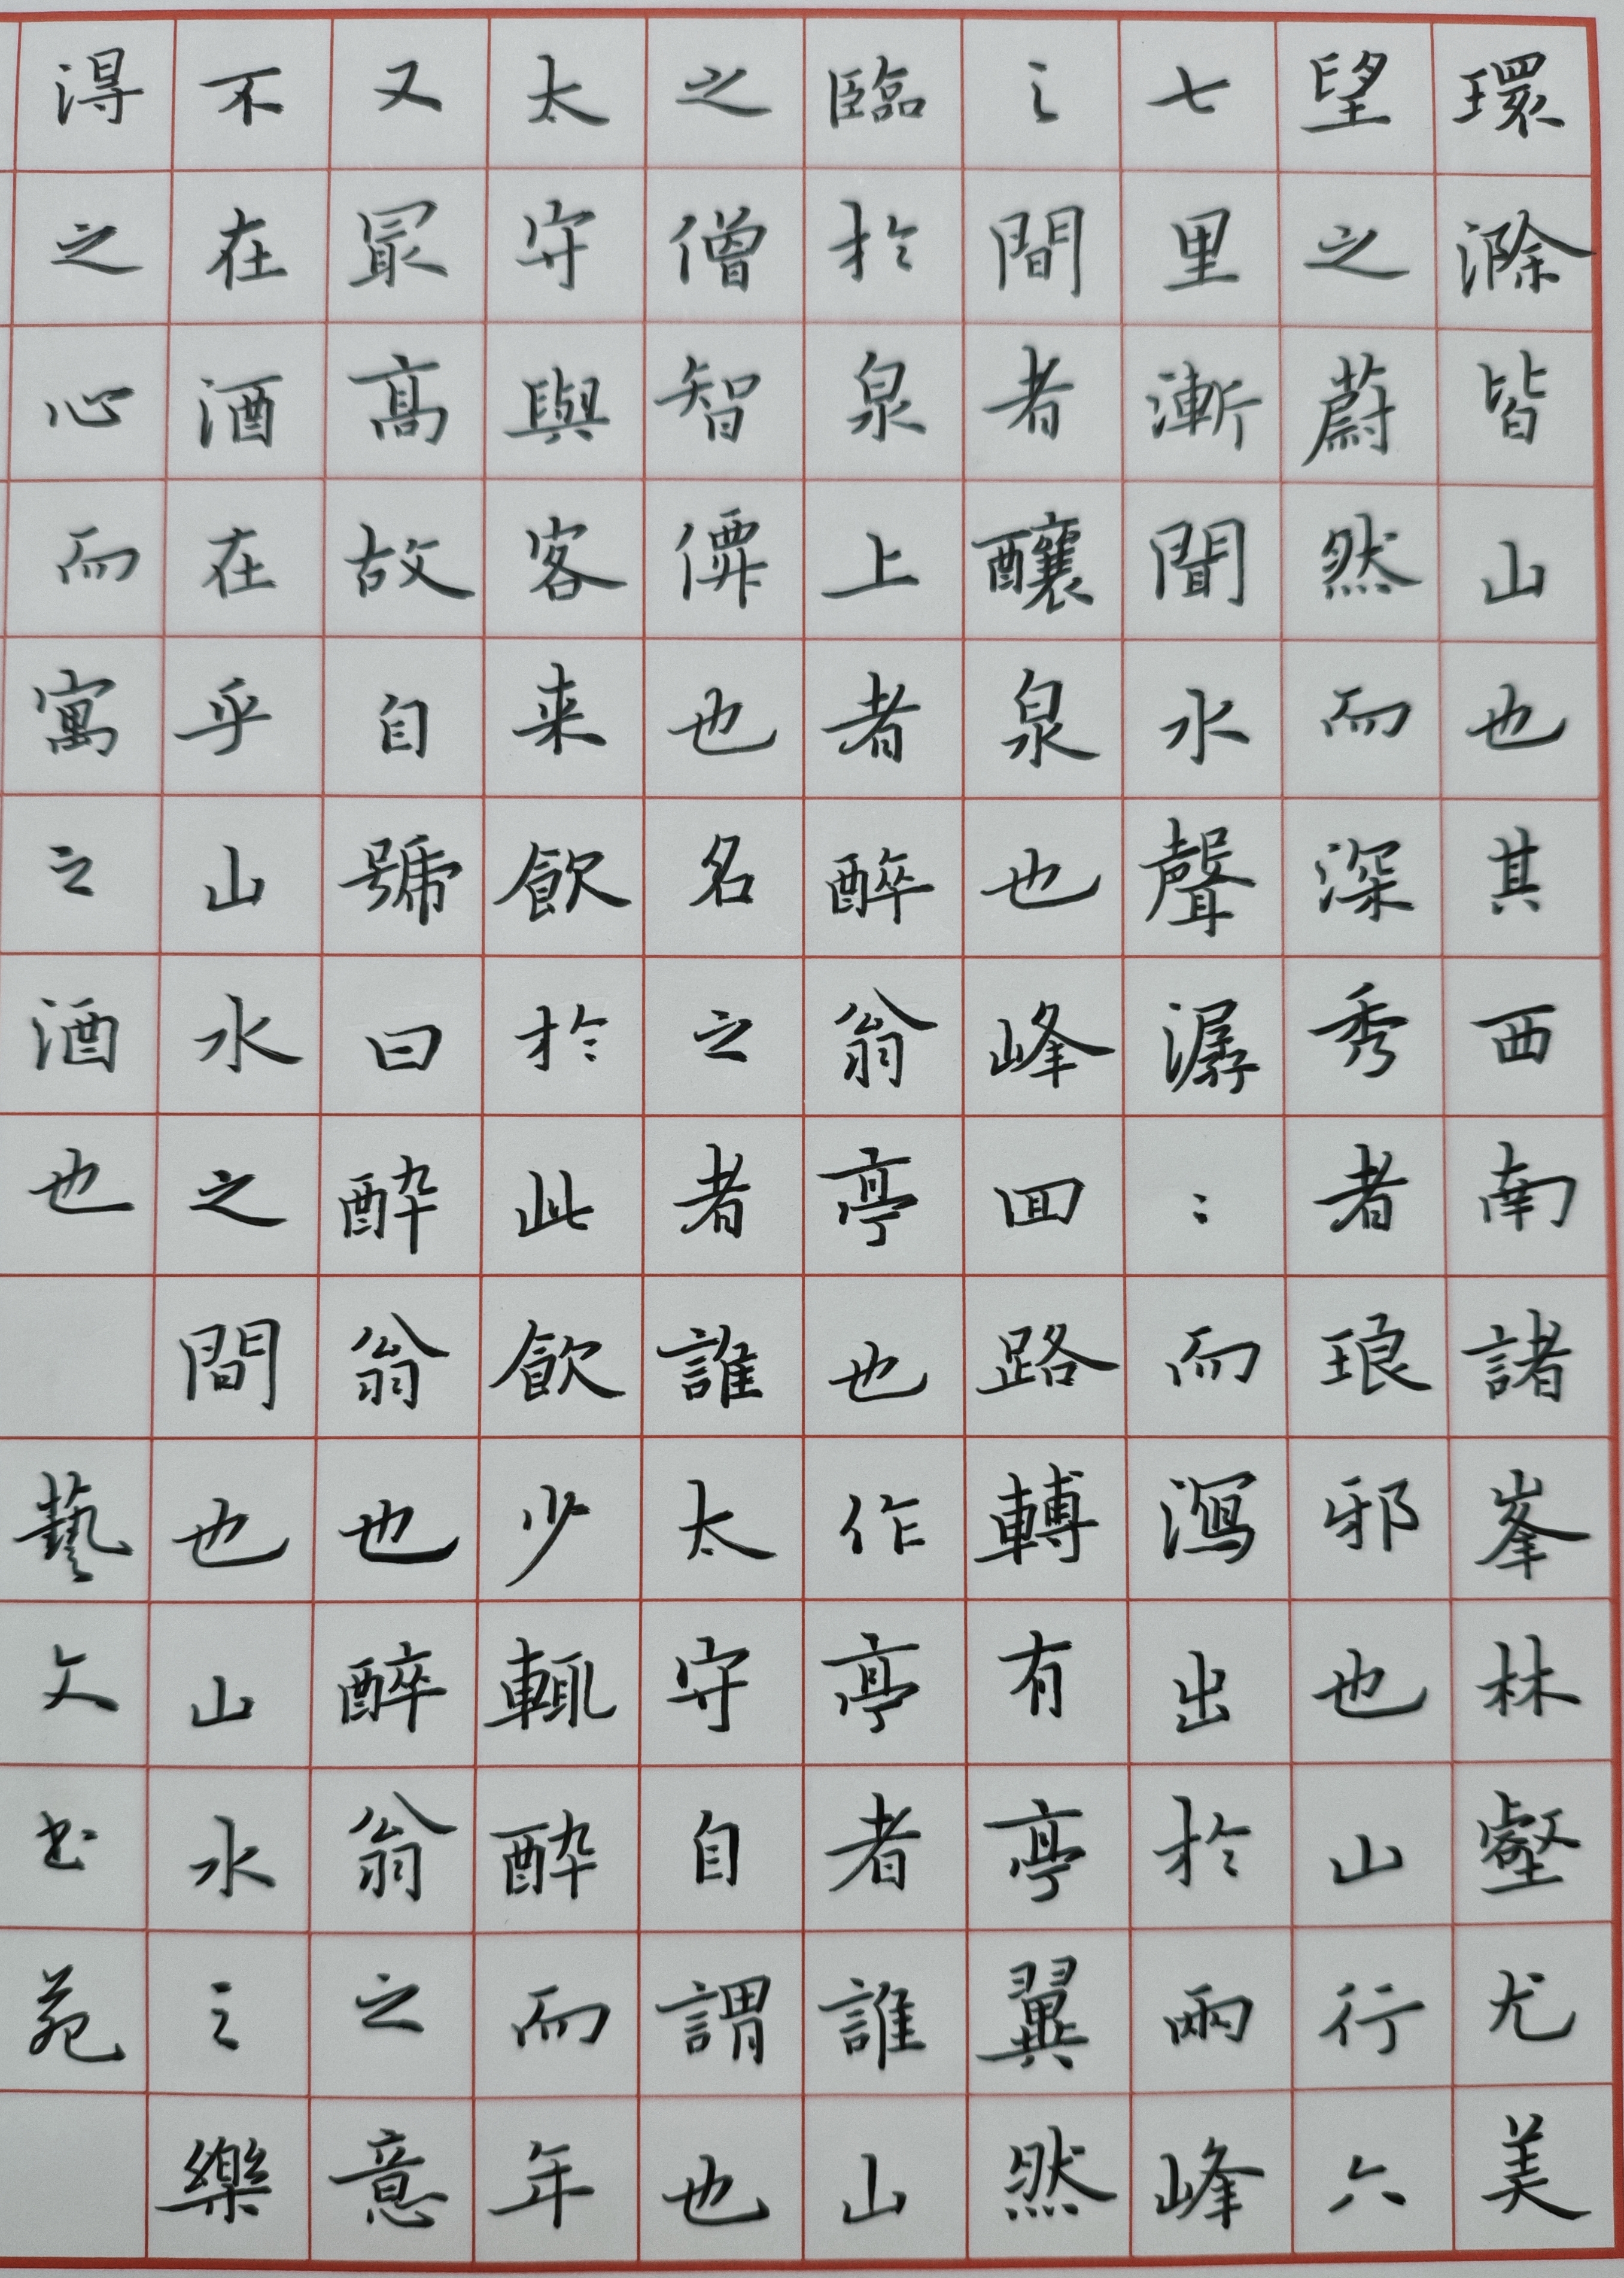 環滁皆山也其西南諸峯林壑尤美
望之蔚然而深秀者琅邪也山行六
七里漸聞水聲潺々而瀉出於兩峰
之間者釀泉也峰囬路轉有亭翼然
臨於泉上者醉翁亭也作亭者誰山
之僧智僊也名之者誰太守自謂也
太守與客来飲於此飲少輒醉而年
又冣髙故自號曰醉翁也醉翁之意
不在酒在乎山水之間也山水之樂
得之心而寓之酒也 藝文书苑